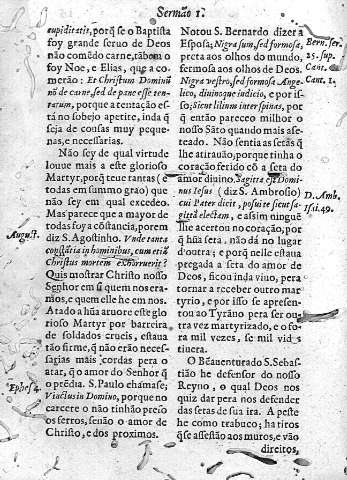 Sermão 1.
cupiditatis, porq̃ se o Baptista
foy grande seruo de Deos
não comèdo carne, tãbom o
foy Noe, e Elias, que a co-
merão: Et Christum Dominũ
nõ de carne, sed de pane esse ten-
tatum, porque a tentação es-
tá no sobejo apetite, inda q̃
seja de cousas muy peque-
nas, e necessarias.
Não sey de qual virtude
louue mais a este glorioso
Martyr, porq̃ teue tantas (e
todas em summo grao) que
não sey em qual excedeo.
Mas parece que a mayor de
todas foy a cõstancia, porem
August.
diz S. Agostinho. Vnde tanta
constãcia in hominibus, cum etiã
Christus mortem exhorruerit?
Quis mostrar Christo nosso
Senhor em si quem nos era-
mos, e quem elle he em nos.
Atado a hũa aruore este glo-
rioso Martyr por barreira
de soldados crueis, estaua
tão firme, q̃ não erão neces-
sarias mais cordas pera o
atar, que o amor do Senhor q̃
Ephes 4.
o prẽdia. S. Paulo chamase;
Vinctus in Domino, porque no
carcere o não tinhão preso
os ferros, senão o amor de
Christo, e dos proximos.
Notou S. Bernardo dizer a
Esposa; Nigra sum, sed formosa,
Bern. ser.
25. sup.
Cant. 1.
preta aos olhos do mundo,
sermosa aos olhos de Deos.
Nigra vestro, sed formosa Ange-
lico, diuinoque iudicio, e por is-
so; sicut lilium inter spinas, por
q̃ então pareceo milhor o
nosso Sãto quando mais as-
seteado. Não sentia as setas q̃
lhe atrauão, porque tinha o
coração ferido cõ a seta do
amor diuino. Sagitta est Domi-
nus Iesus (diz S. Ambrosio)
D. Amb.
Isai. 49.
cui Pater dicit, posui te sicut sa-
gittã electam, e assim ninguẽ
lhe acertou no coração, por
q̃ hũa seta, não dá no lugar
d'outra; e porq̃ nelle estaua
pregada a seta do amor de
Deos, ficou inda viuo, pera
tornar a receber outro mar
tyrio, e por isso se apresen-
tou ao Tyrãno pera ser ou
tra vez martyrizado, e o fo-
ra mil vezes, se mil vidas
tiuera.
O Bẽauenturado S. Sebas-
tião he defensor do nosso
Reyno, o qual Deos nos
quiz dar pera nos defender
das setas de sua ira. A peste
he como trabuco, ha tiros
q̃ se assestão aos muros, e vão
direitos,